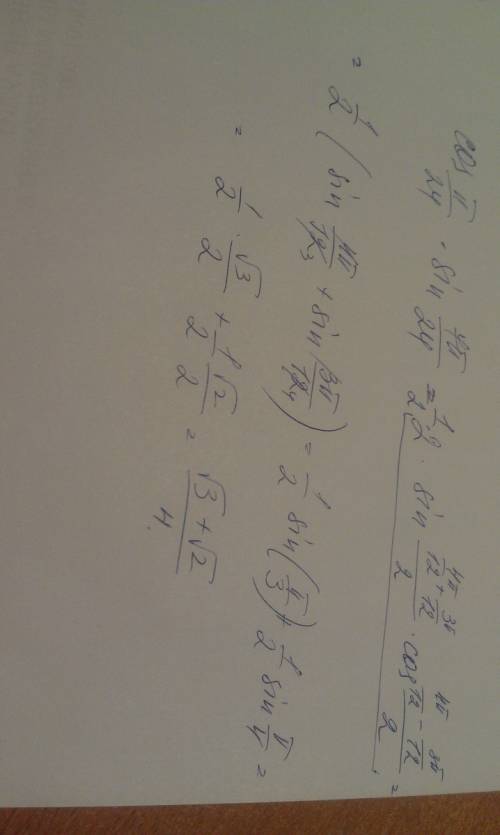 cos π/24 · sin 7π/24 = 1/2 · 2 · sin (4π/12 + 3π/12)/2 · cos (4π/12 - 3π/12)/2 =
= 1/2 (sin 4π/12 3 + sin 3π/12 4) = 1/2 sin(π/3) + 1/2 sin π/4 =
= 1/2 · √3/2 + 1/2 √2/2 = (√3 + √2)/4.